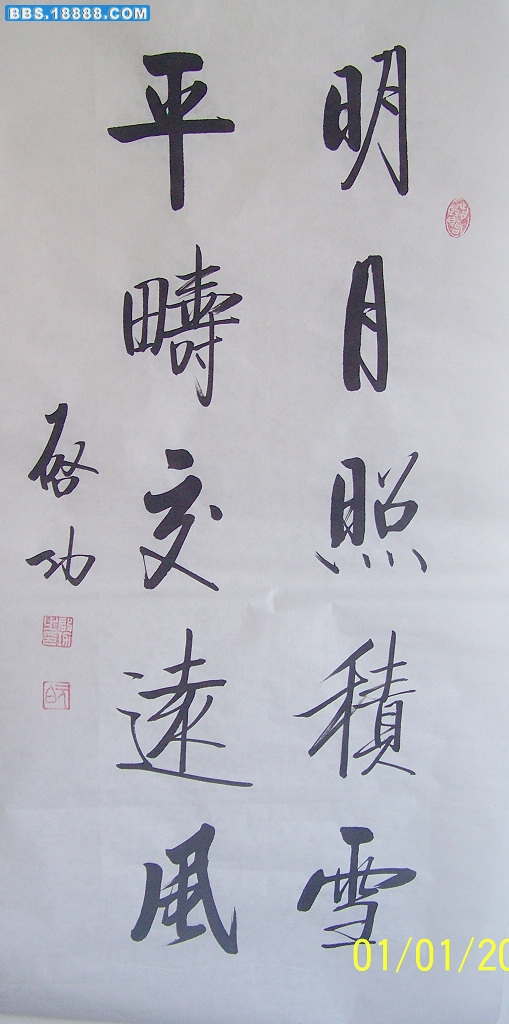 BBS.18888.COM
明月照積雪
平疇交遠風
啓功
01/01/20